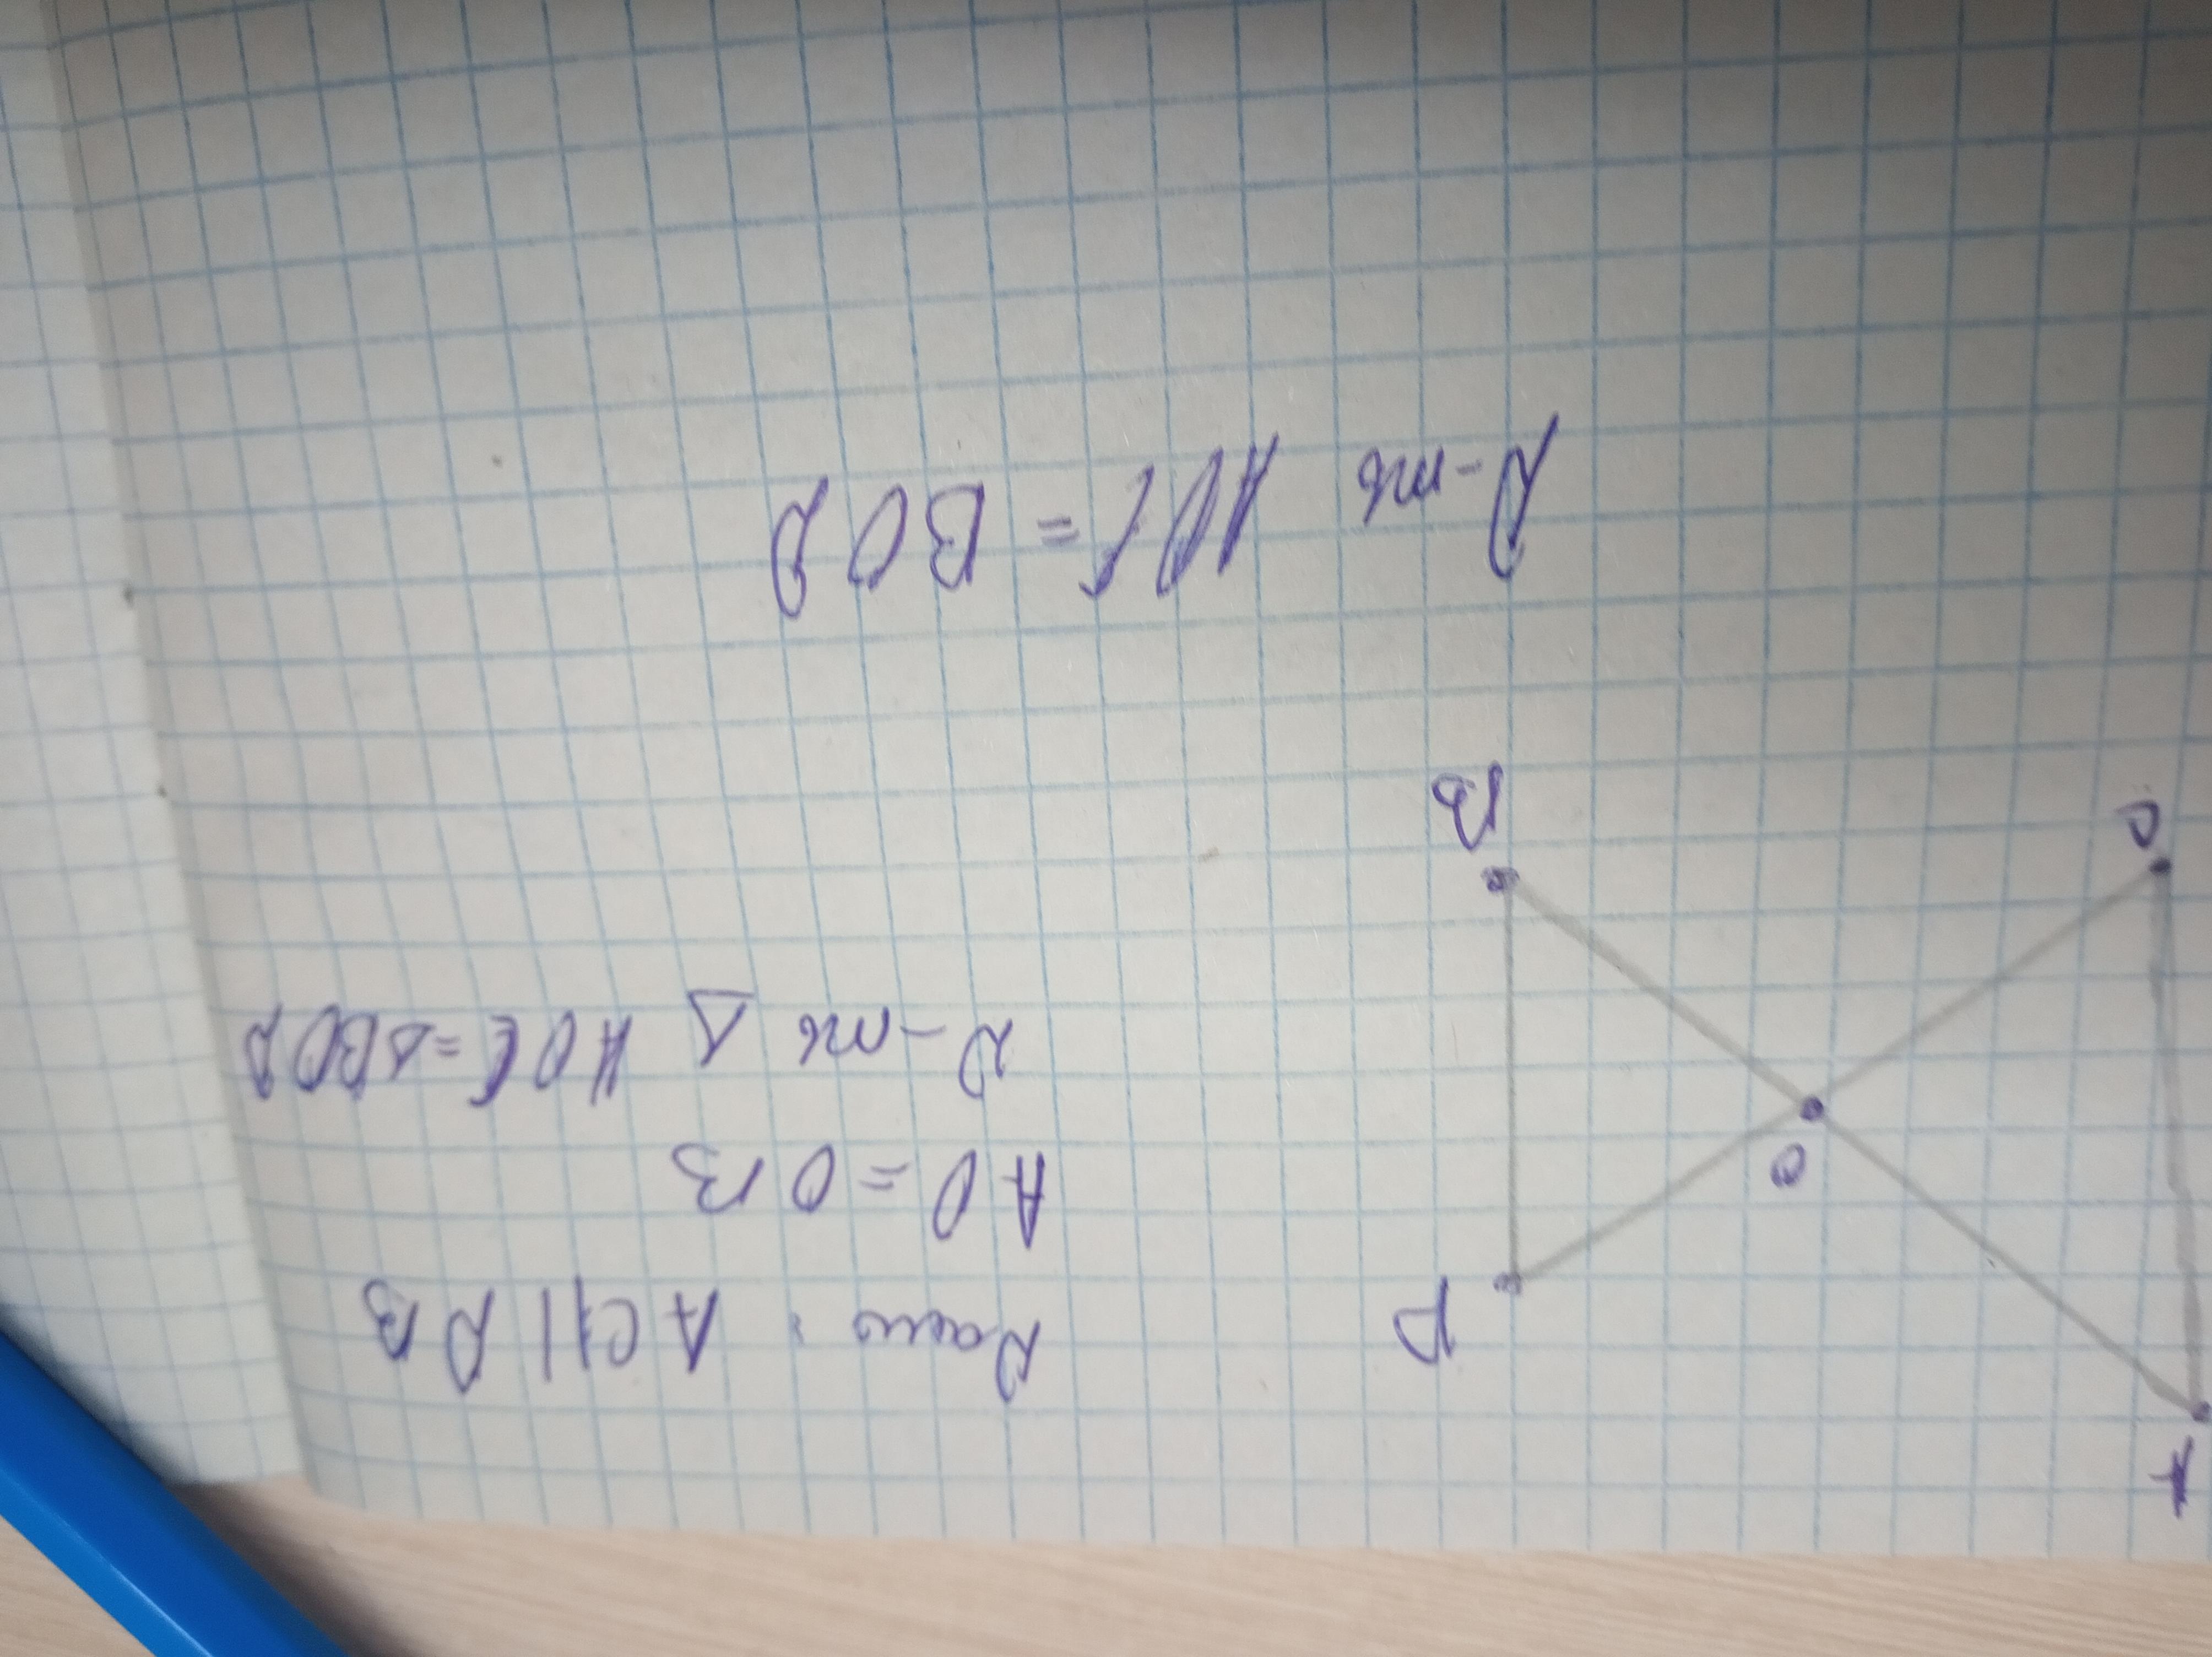 A
D
O
C
B
Дано: AC || DB
AO = OB
Д-ть △ AOC = △BOD
Д-ть AOC = BOD